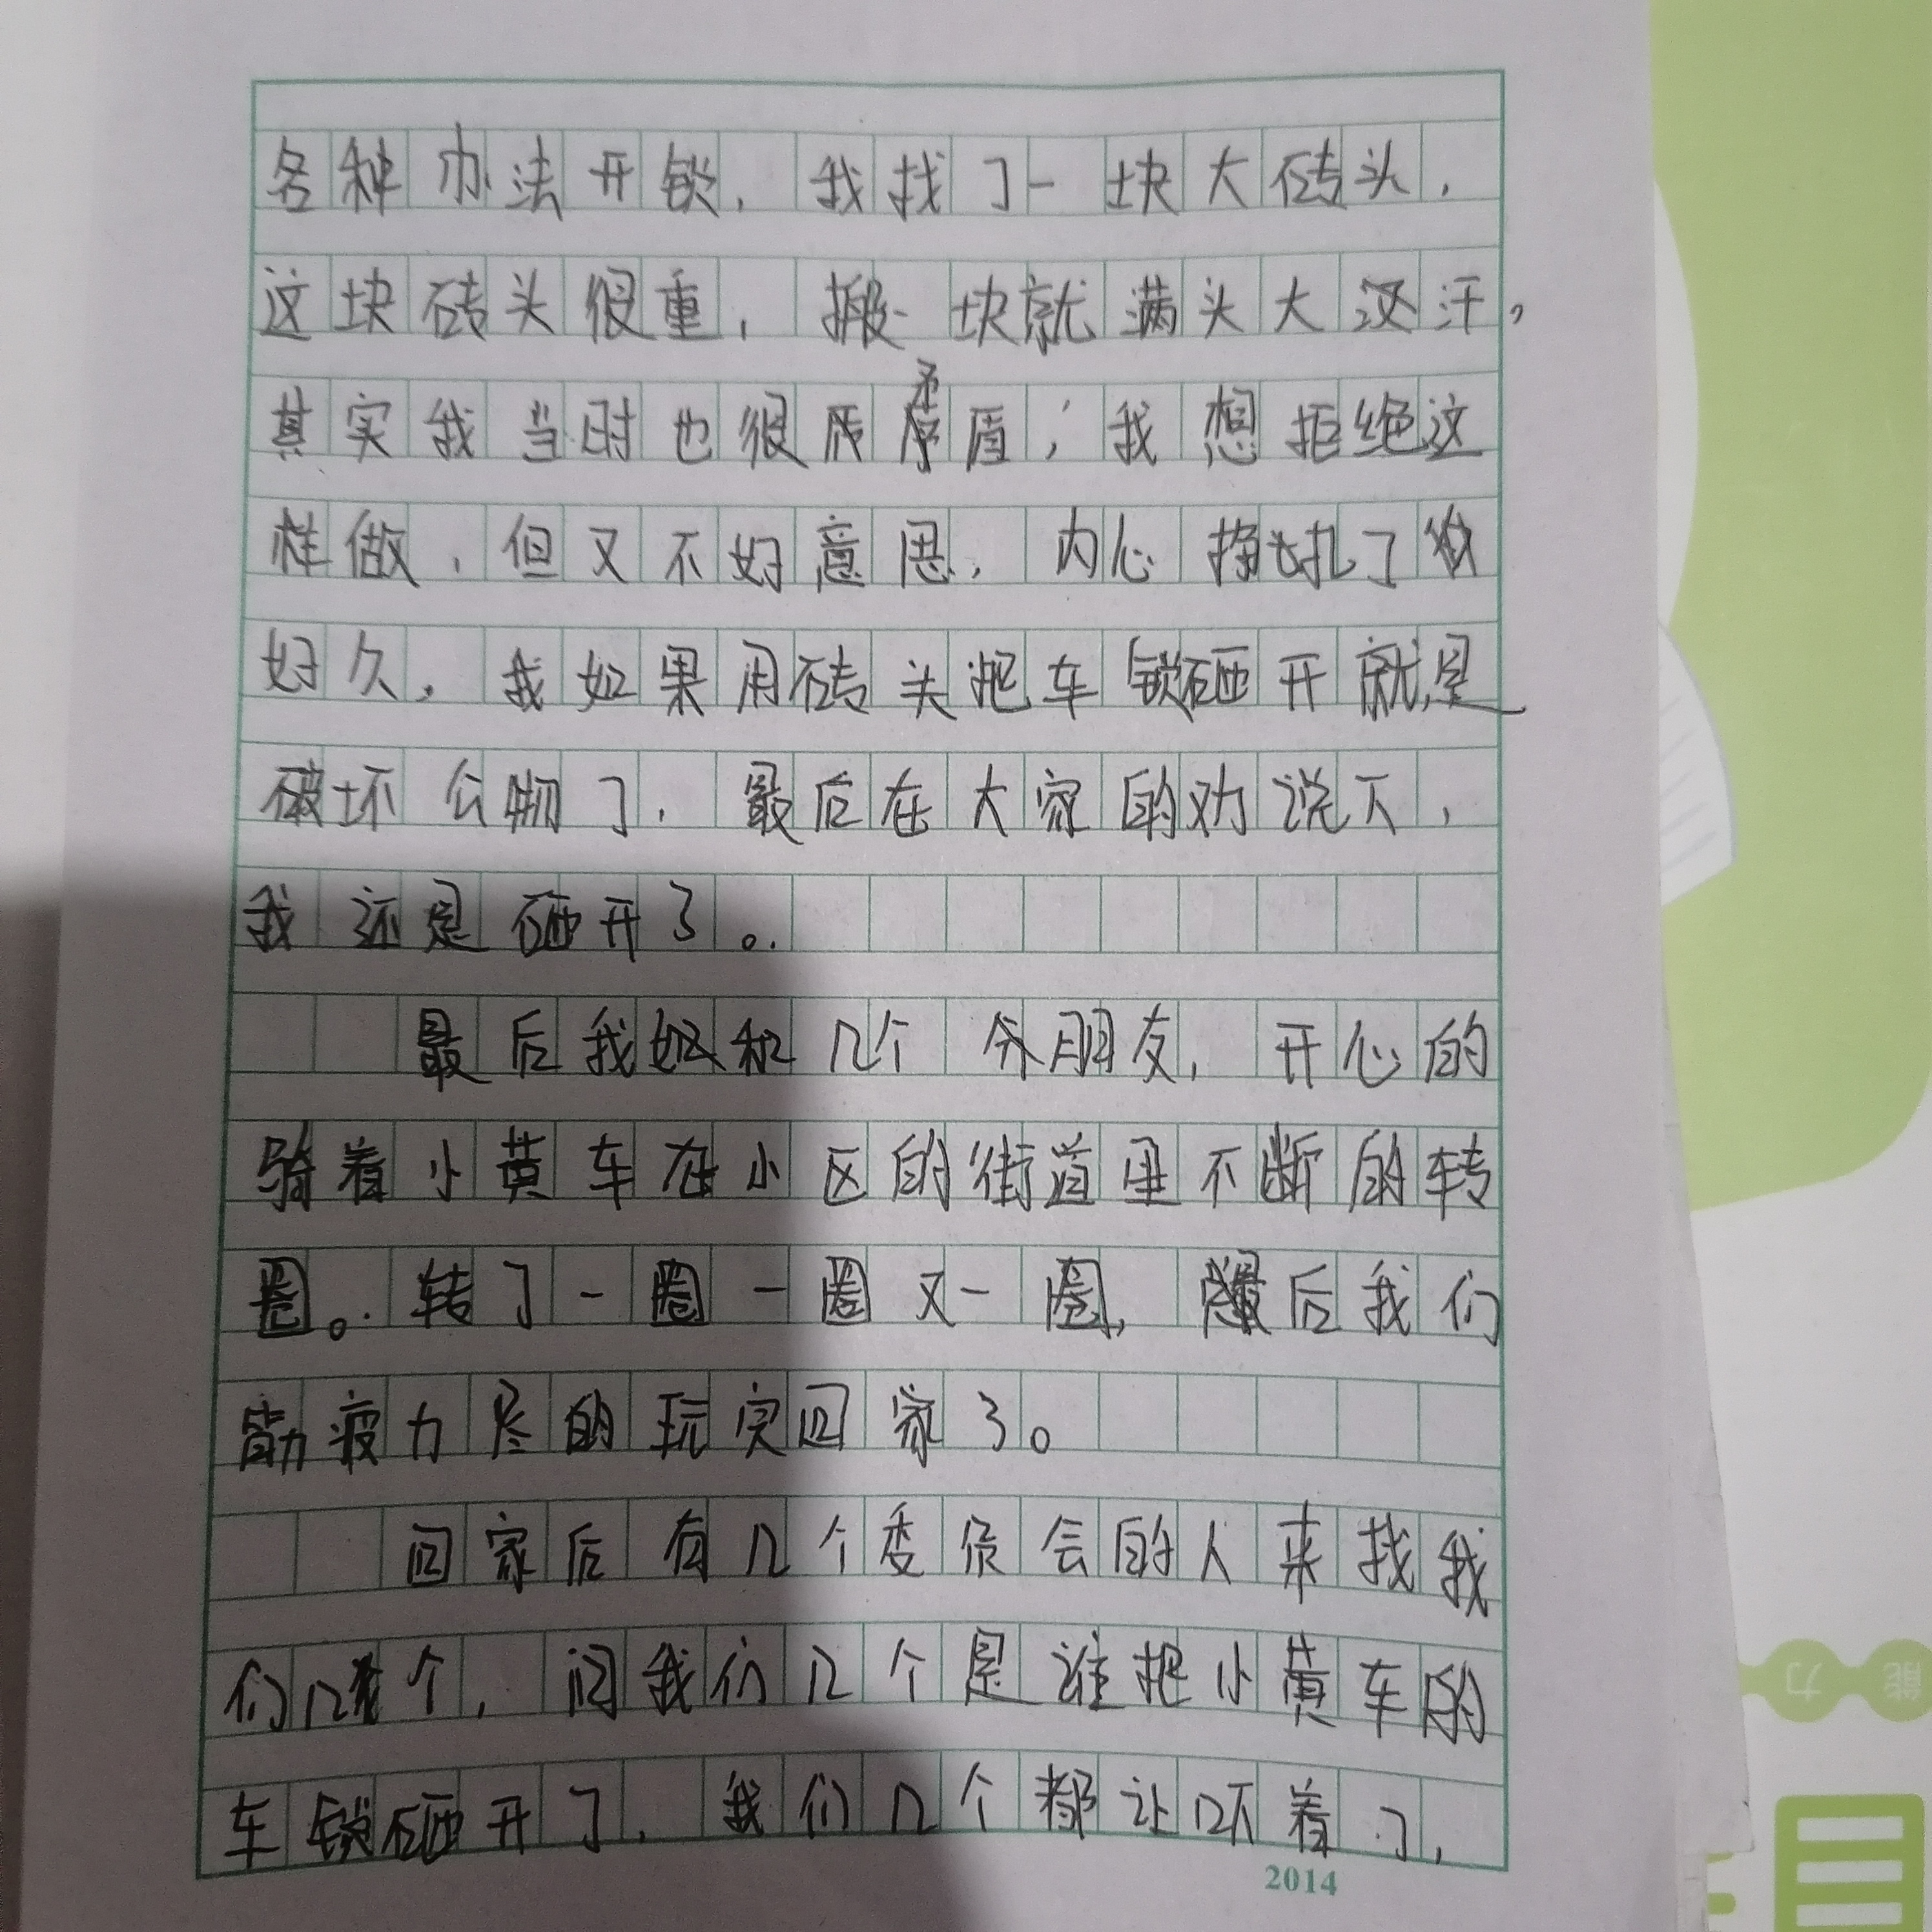 各种办法开锁，我找了一块大砖头，
这块砖头很重，搬一块就满头大汉汗，
其实我当时也很矛盾，我想拒绝这
样做，但又不好意思，内心挣扎了
好久，我如果用砖头把车锁砸开就是
破坏公物了，最后在大家的劝说下，
我还是砸开了。
最后我和几个朋友，开心的
骑着小黄车在小区的街道里不断的转
圈。转了一圈一圈又一圈，最后我们
筋疲力尽的玩完回家了。
回家后有几个委员会的人来找我
们几个，问我们几个是谁把小黄车的
车锁砸开了，我们几个都让吓着了，
2014
能力